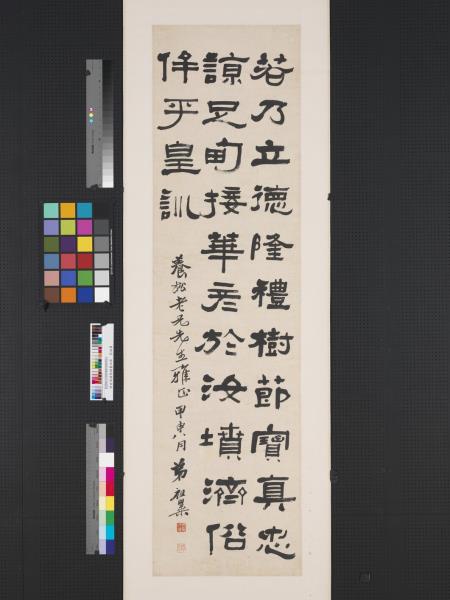 若乃立德隆禮樹節寶真忠
諒足甸接華彥於汝墳濟俗
侔乎皇訓
養松老兄先生雅正 甲申八月 弟祖